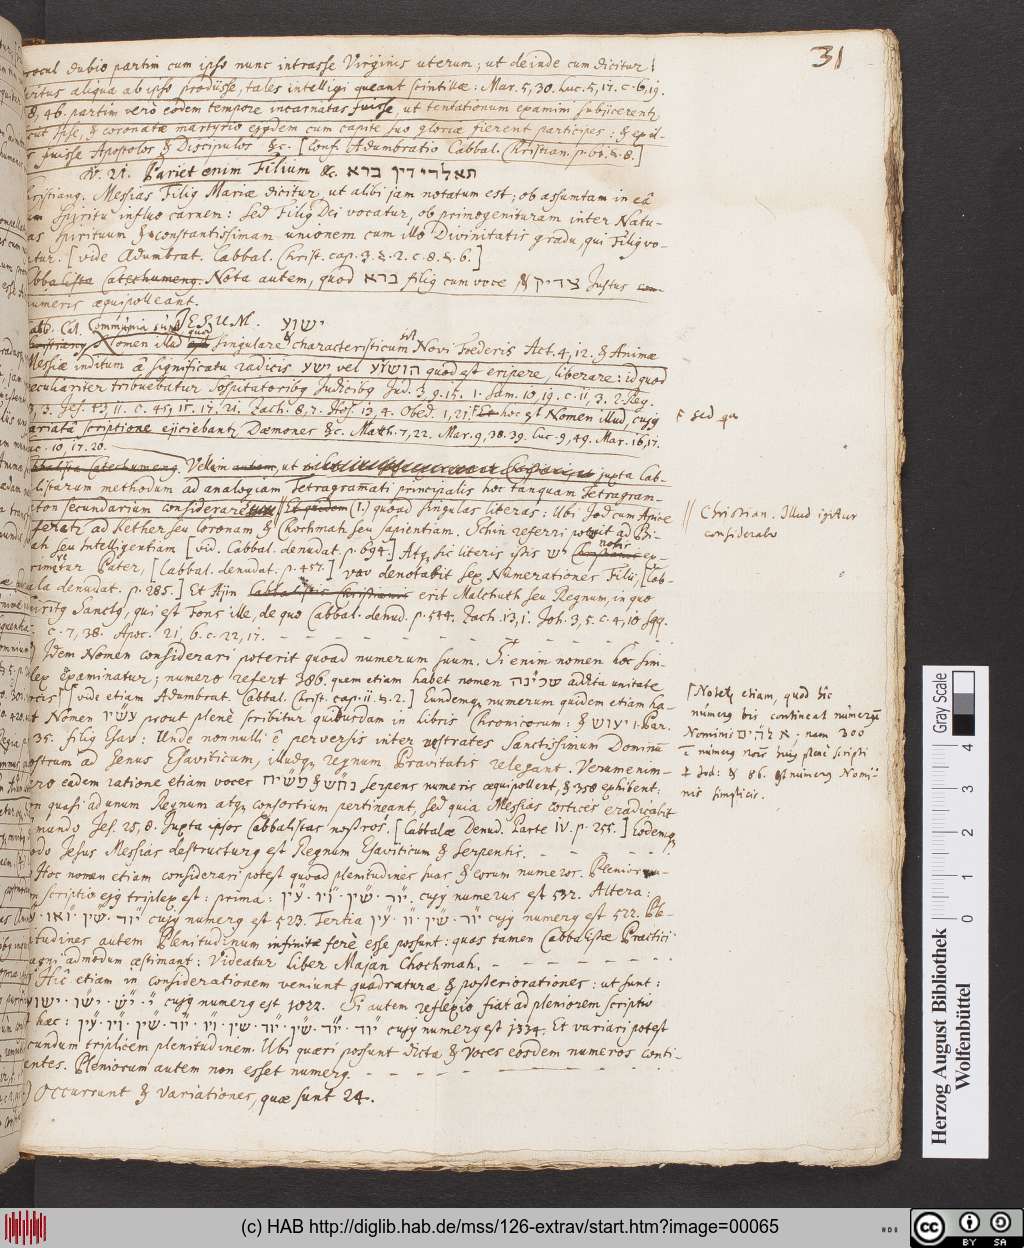 31
rocul dubio partim cum ipso nunc intrasse Virginis uterum; ut deinde cum dicitur
virtus aliqua ab ipso prodiisse, tales intelligi queant scintillæ. Mar. 5, 30. Luc. 5, 17. c. 6, 19.
8, 46. partim verò eodem tempore incarnatas fuisse, ut tentationum examini subjicerentʒ
icut ipse, & coronatæ martyrio ejusdem cum capite suo gloriæ fierent participes: &
fuisse Apostolos & Discipulos &c. [Conf. Adumbratio Cabbal. Christian. p. 8.]
v. 21. Pariet enim Filium &c. תאלרי דין ברא
Christianꝯ. Messias Filiꝯ Mariæ dicitur, ut alibi jam notatum est, ob assumtam in eâ
Spiritu influo carnem: sed Filiꝯ Dei vocatur, ob primogenituram inter Natu-
as spirituum & constantissimam unionem cum illo Divinitatis gradu, qui Filiꝯ vo-
tur. [vide Adumbrat. Cabbal. Christ. cap. 3. §. 2. c. 8. §. 6.]
Cabbalista Catechumenꝯ. Nota autem, quod ברא filiꝯ cum voce צדיק Justus
numeris æquipolleant.
JESUM. ישוע
Nomen illud singulare & characteristicum Novi Fœderis Act. 4, 12. & Animæ
Messiæ inditum â significatu radicis ישע vel הושיע quod est eripere, liberare: id quod
peculiariter tribuebatur Sospitatoribꝯ Judicibꝯ Jud. 3, 9. 15. 1. Sam. 10, 19. c. 11, 3. 2. Reg.
13, 5. Jes. 43, 11. c. 45, 15. 17. 21. Zach. 8, 7. Hos. 13, 4. Obed. 1, 21. Et hoc est Nomen illud, cujꝯ
variatâ scriptione ejiciebantʒ Dæmones &c. Matth. 7, 22. Mar. 9, 38. 39. Luc. 9, 49. Mar. 16, 17.
uc. 10, 17. 20.
Cabbalista Catechumenꝯ. Vellem autem, ut juxta Cab-
listarum methodum ad analogiam Tetragrammati principalis hoc tanquam Tetragram-
ton secundarium considerare Et quidem (1.) quoad singulas literas: Ubi Jod cum Apice
ad Kether seu Coronam & Chochmah seu sapientiam. Schin referri potuit ad Bi-
ah seu Intelligentiam [vid. Cabbal. denudat. p. 694.] Atq, sic literis istis יש nobis ex-
Pater, [Cabbal. denudat. p. 457.] vav denotabit sex Numerationes Filii, [Cab-
la denudat. p. 285.] Et Ajin Cabbalistis Christianis erit Malchuth seu Regnum, in quo
Spiritꝯ Sanctꝯ, qui est Fons ille, de quo Cabbal. denud. p. 544. Zach. 13, 1. Joh. 3, 5. c. 4, 10 sqq.
c. 7, 38. Apoc. 21, 6. c. 22, 17.
Idem Nomen considerari poterit quoad numerum suum. Si enim nomen hoc sim-
plex examinatur; numero refert 386. quem etiam habet nomen שכינה addita unitate
[vide etiam Adumbrat. Cabbal. Christ. cap. 11. §. 2.] Eundemq, numerum quidem etiam ha-
ut Nomen עשיו prout plenè scribitur quibusdam in libris Chronicorum: & יעוש 1. Par.
35. filiꝯ Esav: Unde nonnulli è perversis inter vestrates Sanctissimum Dominum
nostrum ad Genus Esaviticum, illudq, regnum Pravitatis relegant. Verumenim-
ero eadem ratione etiam voces נחש & משיח Serpens numeris æquipollent, & 358 exhibent:
on quasi ad unum Regnum atq, consortium pertineant, sed quia Messias cortices eradicabit
mundo Jes. 25, 8. Juxta ipsos Cabbalistas nostros. [Cabbalæ Denud. Parte IV. p. 255.] eodemq,
odo Jesus Messias destructurꝯ est Regnum Esaviticum & Serpentis.
Hoc nomen etiam considerari potest quoad plenitudines suas & eorum numeros. Plenior
scriptio ejꝯ triplex est: prima: יוד · שין · ויו · עין cujꝯ numerus est 532. Altera:
יוד · שין · ואו cujꝯ numerꝯ est 523. Tertia יוד · שין · וו · עין cujꝯ numerꝯ est 522. Ple-
itudines autem Plenitudinum infinitæ ferè esse possunt: quas tamen Cabbalistæ Practici
agni admodum æstimant: Videatur liber Majan Chochmah.
Hîc etiam in considerationem veniunt quadraturæ & posteriorationes: ut sunt:
י · יש · ישו · ישוע cujꝯ numerꝯ est 1022. Si autem reflexio fiat ad pleniorem scriptio
hæc: יוד · יוד · שין · יוד · שין · ויו · יוד · שין · ויו · עין cujꝯ numerꝯ est 1334. Et variari potest
cundum triplicem plenitudinem. Ubi quæri possunt dicta & voces eosdem numeros conti-
entes. Pleniorum autem non esset numerꝯ.
Occurrunt & variationes, quæ sunt 24.
sed qu
// Christian. Illud igitur
considerabo
[Notetʒ etiam, quod hîc
numerꝯ bis contineat numerum
Nominis אלהים: nam 300
è numerꝯ nois hujꝯ plenè scripti
& 86. numerꝯ Nomi-
nis simplicis.
Herzog August Bibliothek
Wolfenbüttel
Gray Scale
0 1 2 3 4
(c) HAB http://diglib.hab.de/mss/126-extrav/start.htm?image=00065
HAB
cc BY SA